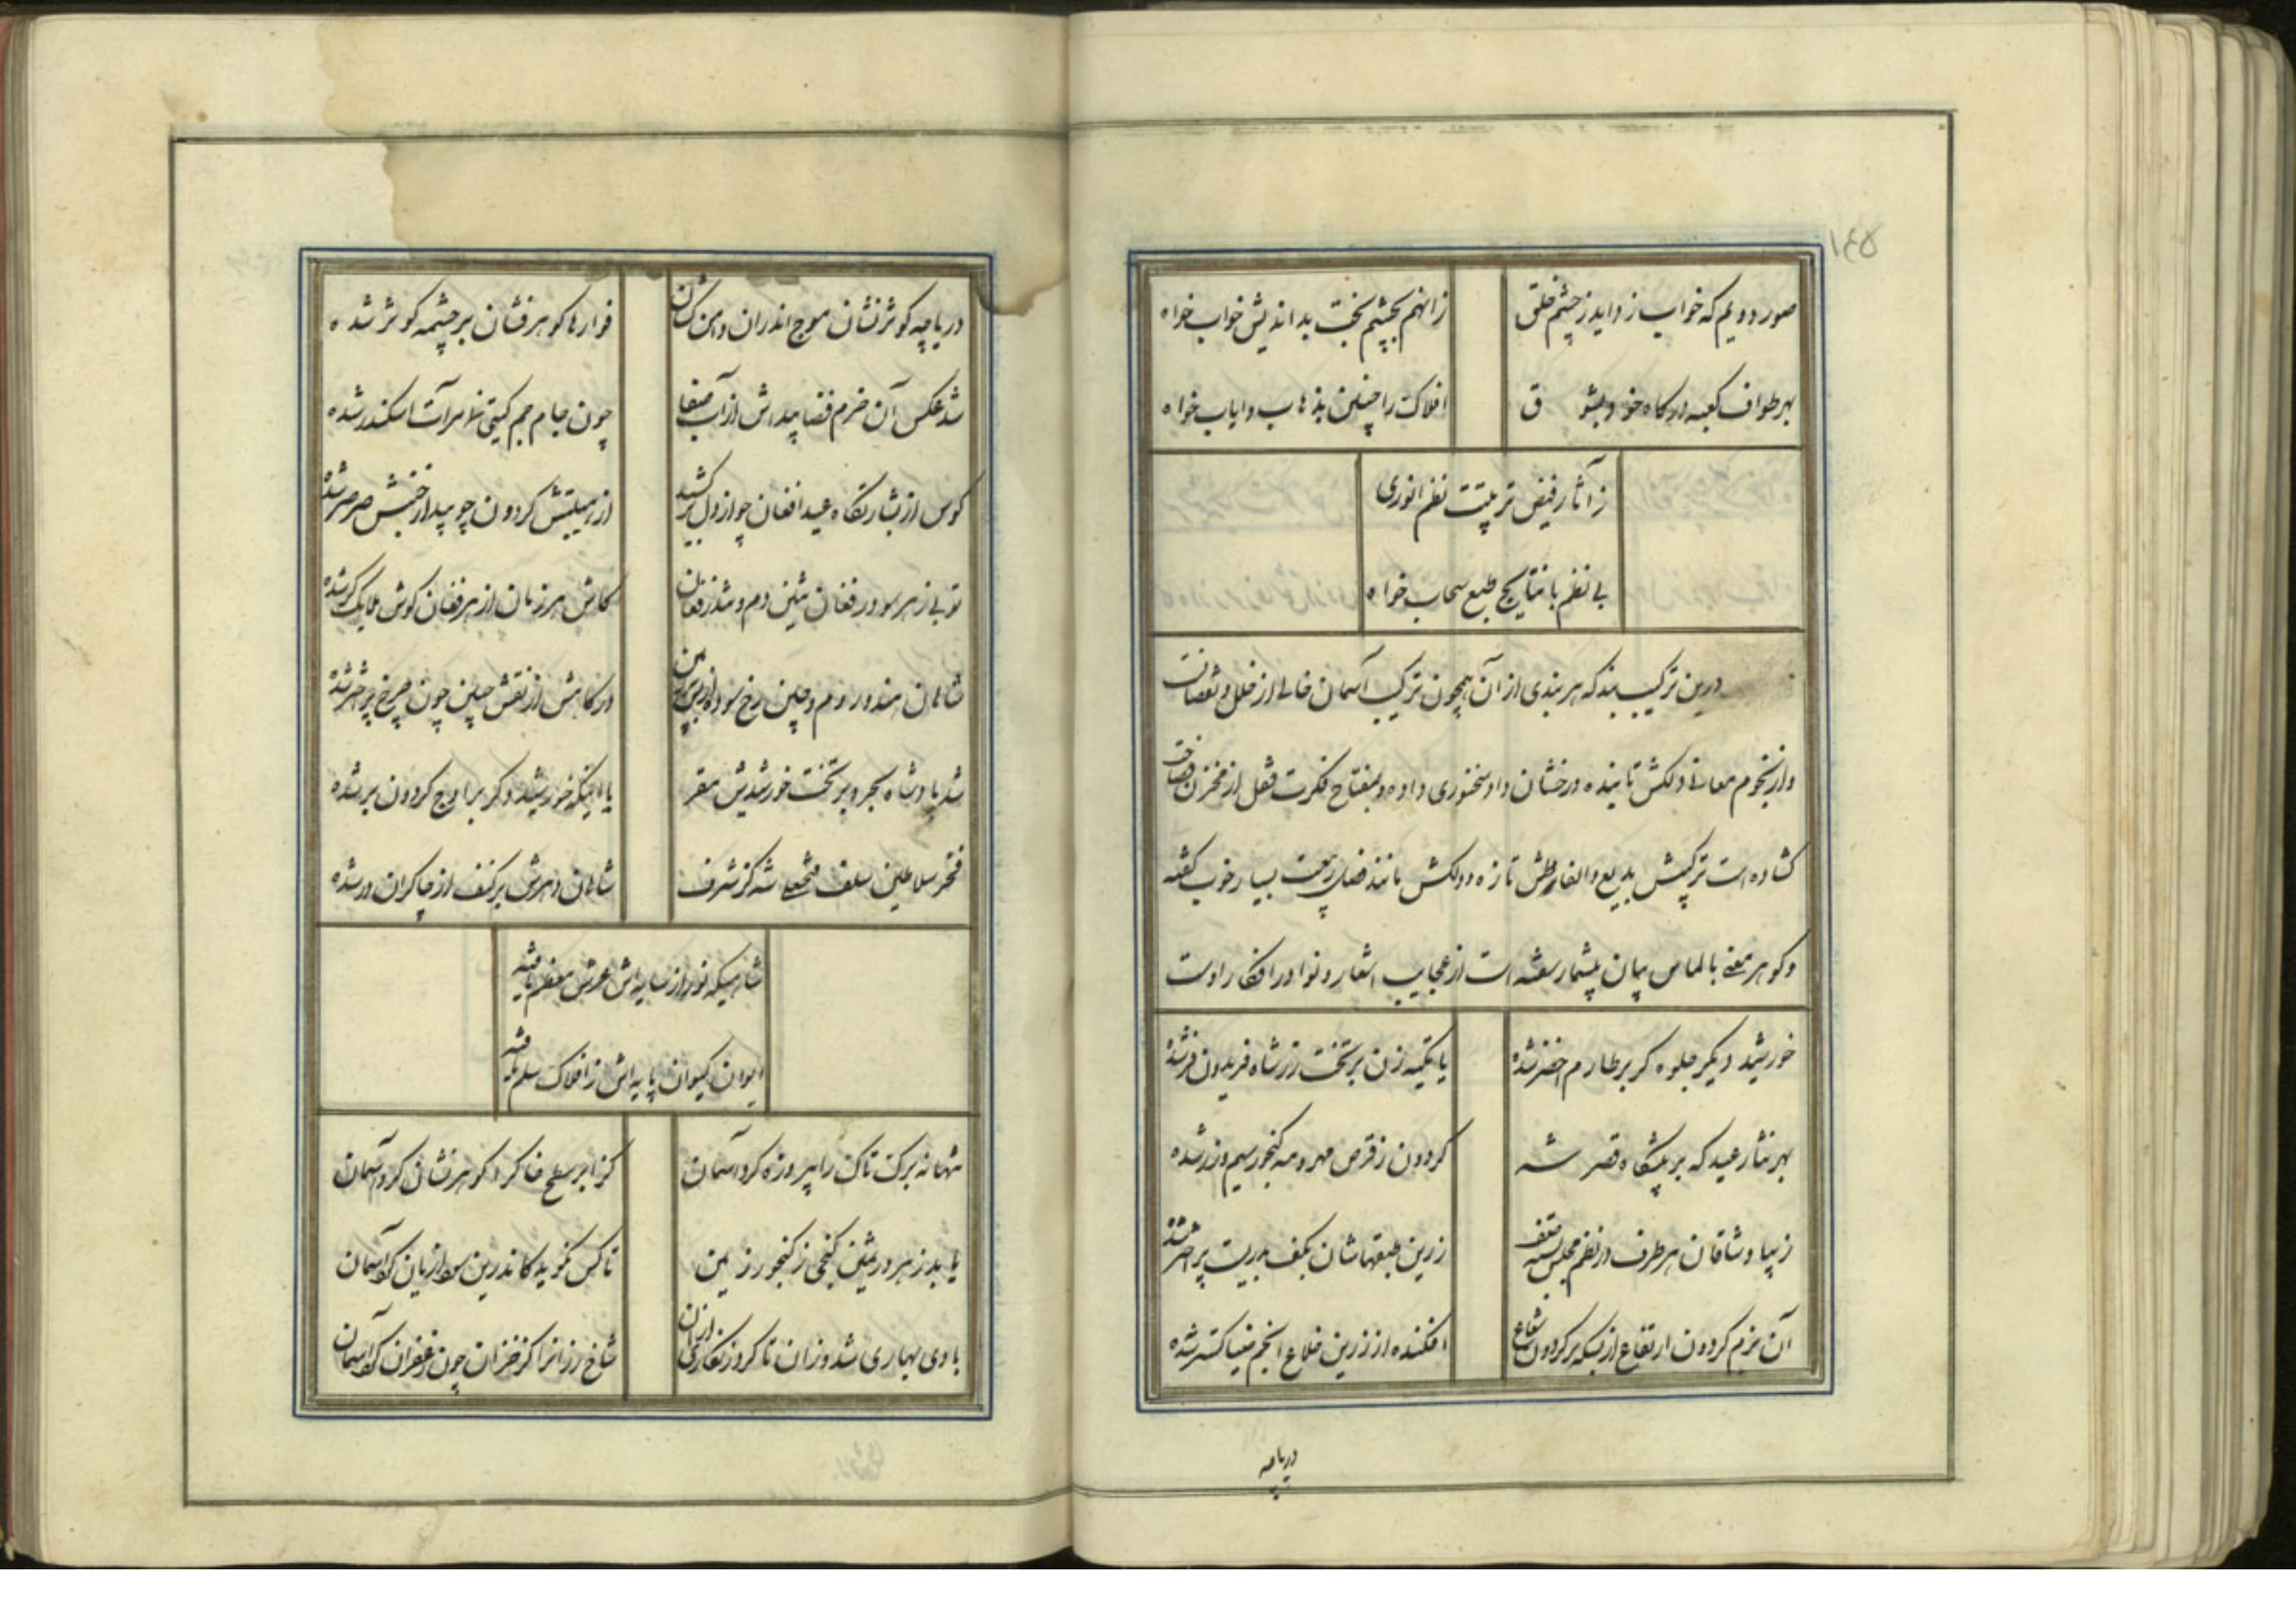 ۱۴۵
صور دویم که خواب زداید ز چشم خلق زانهم بچشم بخت بداندیش خواب خواه
بهر طواف کعبه درکاه خود بشو ق افلاک را چنین بذهاب و ایاب خواه
ز آثار فیض تربیتت نظم انوری
بی نظم با نتایج طبع سحاب خواه
درین ترکیب بند که هر بندی از آن همچون ترکیب آسمان خالی از خلل و نقصانت
و از نجوم معانی دلکش تابنده و رخشان داد سخنوری داده و بمفتاح فکرت قفل از مخزن
کشاده است ترکیبش بدیع و الفاظش تازه و دلکش مانند فصل ربیعست بسیار خوب کفته
و کوهر معنی بالماس بیان بیشمار سفته است از عجایب اشعار و نوادر افکار اوست
خورشید دیکر جلوه کر بر طارم اخضر شده یا تکیه زن بر تخت زر شاه فریدون فر شده
بهر نثار عید که بر پیشکاه قصر شه کردون ز قرص مهر و مه کنجور سیم و زر شده
زیبا وشاقان هر طرف در نظم مجلس بسته صف زرین طبقهاشان بکف هر یک پر اختر شده
آن بزم کردون ارتفاع از بسکه بر کردون شعاع افکنده از زرین خلاع انجم ضیا کستر شده
دریاچه
دریاچه کوثر نشان موج اندران دامن کشان فوارها کوهر فشان بر چشمه کوثر شده
شد عکس آن خرم فضا پیدا ش از آب صفا چون جام جم کیتی نما مرآت اسکندر شده
کوس از بشارتکاه عید افغان چو از دل بر کشید از هیبتش کردون چو بید از جنبش صرصر شده
توپی ز هر سو در فغان تنین دم و تندر فغان کاش هر زمان از هر فغان کوش ملایک کر شده
شاهان هند و روم و چین رخ سوده از بس بر زمین درکاهش از نقش جبین چون چرخ پر اختر شده
شد پادشاه بحر و بر تخت خورشیدش مقر یا اینکه خورشید دکر بر اوج کردون بر شده
فخر سلاطین سلف فتحعلی شه کز شرف شاهان دهرش بر کنف از چاکران در شده
شاهیکه نور از سایه‌اش عرش معظم یافته
ایوان کیوان پایه‌اش ز افلاک سلم یافته
تنها نه برک تاک را پیروزه کرد آسمان کز ابر سطح خاک را کوهر نشان کرد آسمان
یابد ز هر ورثین کنجی ز کنجور زمین تا کس نکوید کاندرین سودا زیان کرد آسمان
باد بهاری شد وزان تا کرد زنکاری از آن شاخ رزانرا کز خزان چون زعفران کرد آسمان